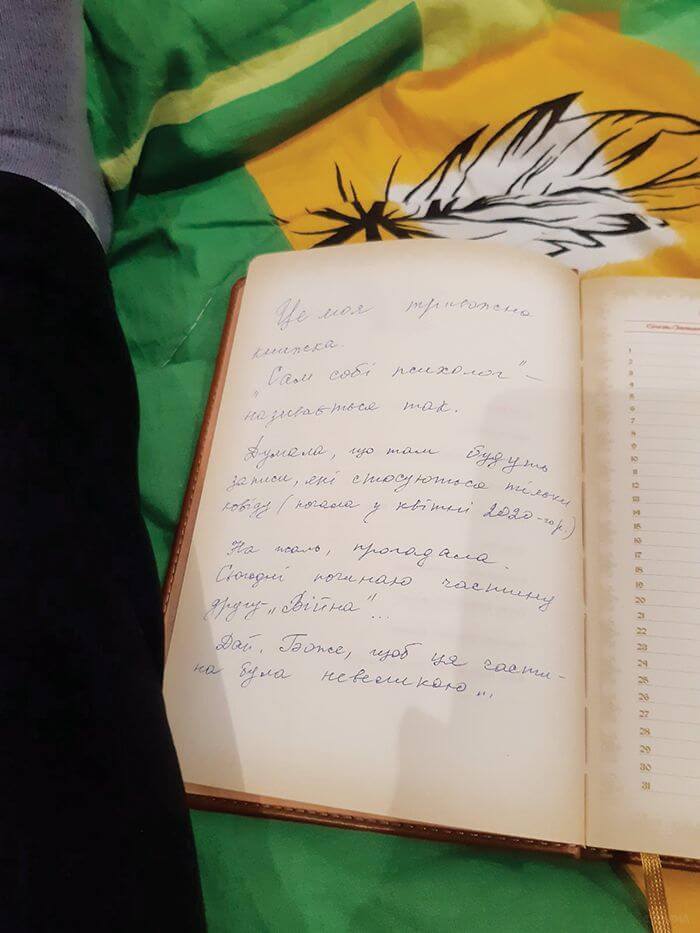 Це моя тривожна
книжка.
„Сам собі психолог" –
називається так.
Думала, що там будуть
записи, які стосуються тільки
ковіду (почала у квітні 2020-го р.)
На жаль, прогадала.
Сьогодні починаю частину
другу – „Війна"...
Дай, Боже, щоб ця части-
на була невеликою...
1
2
3
4
5
6
7
8
9
10
11
12
13
14
15
16
17
18
19
20
21
22
23
24
25
26
27
28
29
30
31